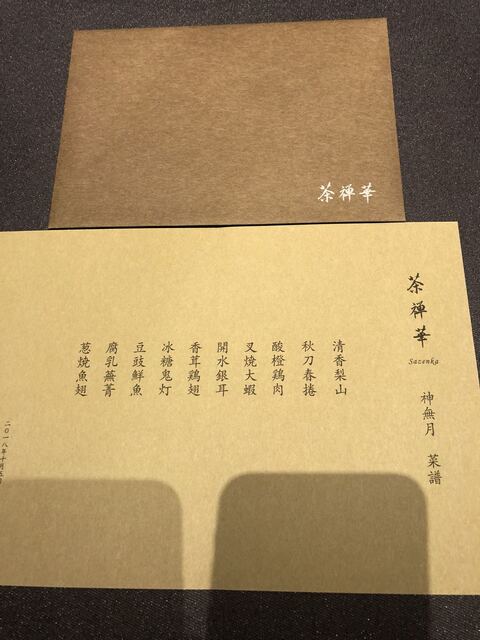 茶禅華
茶禅華
Sazenka
神無月 菜譜
清香梨山
秋刀春捲
酸橙鶏肉
叉焼大蝦
開水銀耳
香茸鶏翅
冰糖鬼灯
豆豉鮮魚
腐乳蕪菁
葱焼魚翅
二〇一八年十月五日